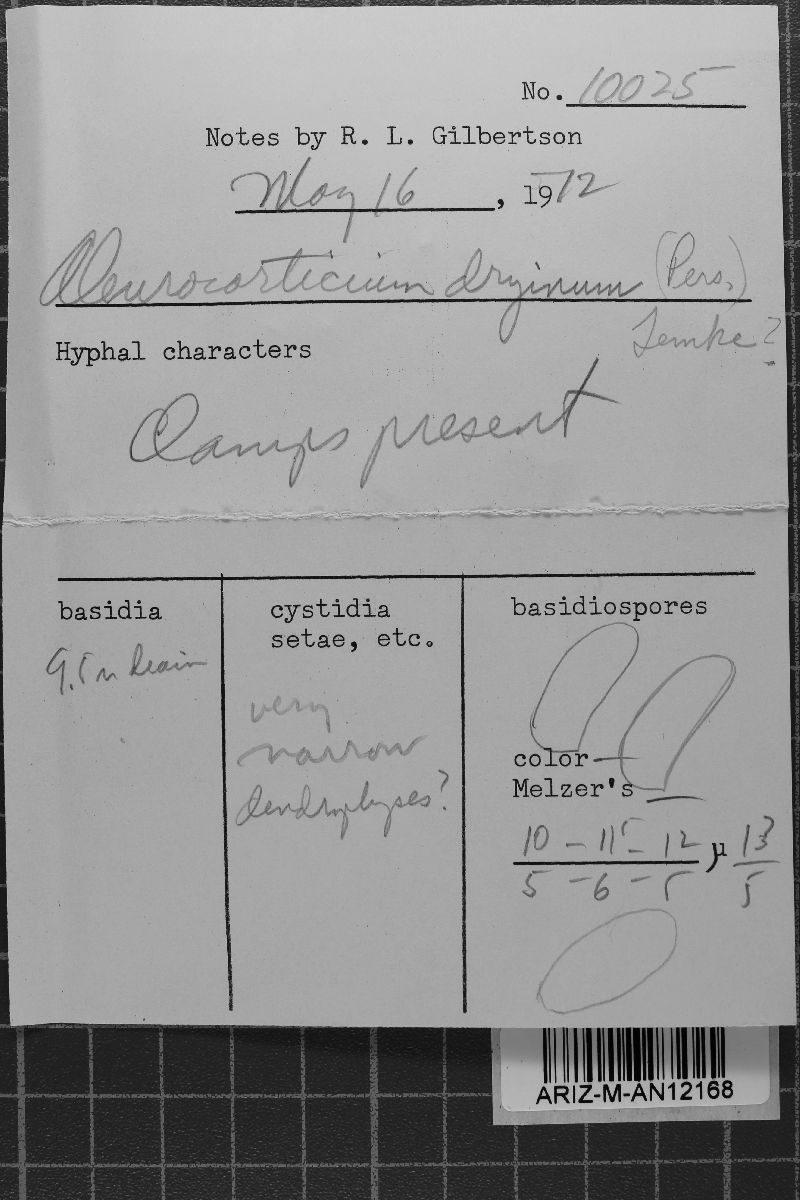 No. 10025
Notes by R. L. Gilbertson
May 16, 1972
Aleurocorticium dryinum (Pers.)
Lemke?
Hyphal characters
Clamps present
basidia
cystidia
setae, etc.
basidiospores
9.5 µ diam
very
narrow
dendrophyses?
color —
Melzer's —
10 – 11 – 12 µ 13
5 – 6 – 5 5
ARIZ-M-AN12168